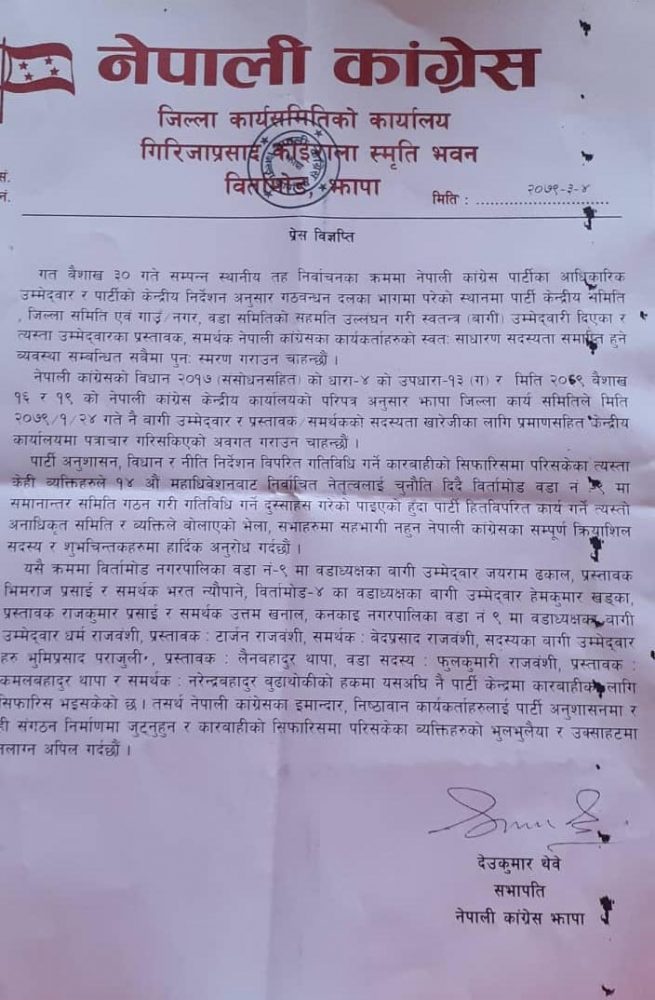 नेपाली कांग्रेस
जिल्ला कार्यसमितिको कार्यालय
गिरिजाप्रसाद कोइराला स्मृति भवन
विर्तामोड, झापा
सं.
नं.
मिति : २०७९-३-४
प्रेस विज्ञप्ति
गत बैशाख ३० गते सम्पन्न स्थानीय तह निर्वाचनका क्रममा नेपाली कांग्रेस पार्टीका आधिकारिक
उम्मेदवार र पार्टीको केन्द्रीय निर्देशन अनुसार गठवन्धन दलका भागमा परेको स्थानमा पार्टी केन्द्रीय समिति
, जिल्ला समिति एवं गाउँ/नगर, वडा समितिको सहमति उल्लघन गरी स्वतन्त्र (बागी) उम्मेदवारी दिएका र
त्यस्ता उम्मेदवारका प्रस्तावक, समर्थक नेपाली कांग्रेसका कार्यकर्ताहरुको स्वत: साधारण सदस्यता समाप्ति हुने
व्यवस्था सम्वन्धित सबैमा पुन: स्मरण गराउन चाहन्छौं ।
नेपाली कांग्रेसको विधान २०१७ (संसोधनसहित) को धारा-४ को उपधारा-१३ (ग) र मिति २०७९ बैशाख
१६ र १९ को नेपाली कांग्रेस केन्द्रीय कार्यालयको परिपत्र अनुसार झापा जिल्ला कार्य समितिले मिति
२०७९/१/२४ गते नै वागी उम्मेदवार र प्रस्तावक/समर्थकको सदस्यता खारेजीका लागि प्रमाणसहित केन्द्रीय
कार्यालयमा पत्राचार गरिसकिएको अवगत गराउन चाहन्छौं ।
पार्टी अनुशासन, विधान र नीति निर्देशन विपरित गतिविधि गर्ने कारबाहीको सिफारिसमा परिसकेका त्यस्ता
केही व्यक्तिहरुले १४ औं महाधिवेशनवाट निर्वाचित नेतृत्वलाई चुनौति दिदै विर्तामोड वडा नं ९ मा
समानान्तर समिति गठन गरी गतिविधि गर्ने दुस्साहस गरेको पाइएको हुँदा पार्टी हितविपरित कार्य गर्ने त्यस्तो
अनाधिकृत समिति र व्यक्तिले बोलाएको भेला, सभाहरुमा सहभागी नहुन नेपाली कांग्रेसका सम्पूर्ण क्रियाशिल
सदस्य र शुभचिन्तकहरुमा हार्दिक अनुरोध गर्दछौं ।
यसै क्रममा विर्तामोड नगरपालिका वडा नं-९ मा वडाध्यक्षका वागी उम्मेदवार जयराम ढकाल, प्रस्तावक
भिमराज प्रसाई र समर्थक भरत न्यौपाने, विर्तामोड-४ का वडाध्यक्षका वागी उम्मेदवार हेमकुमार खड्का,
प्रस्तावक राजकुमार प्रसाई र समर्थक उत्तम खनाल, कनकाइ नगरपालिका वडा नं ९ मा वडाध्यक्षका वागी
उम्मेदवार धर्म राजवंशी, प्रस्तावक : टार्जन राजवंशी, समर्थक : बेदप्रसाद राजवंशी, सदस्यका वागी उम्मेदवार
हरु भुमिप्रसाद पराजुली , प्रस्तावक : लैनवहादुर थापा, वडा सदस्य : फुलकुमारी राजवंशी, प्रस्तावक :
कमलबहादुर थापा र समर्थक : नरेन्द्रबहादुर बुढाथोकीको हकमा यसअघि नै पार्टी केन्द्रमा कारबाहीको लागि
सिफारिस भइसकेको छ । तसर्थ नेपाली कांग्रेसका इमान्दार, निष्ठावान कार्यकर्ताहरुलाई पार्टी अनुशासनमा र
ही संगठन निर्माणमा जुट्नुहुन र कारबाहीको सिफारिसमा परिसकेका व्यक्तिहरुको भुलभुलैया र उक्साहटमा
नलाग्न अपिल गर्दछौं ।
देउकुमार थेवे
सभापति
नेपाली कांग्रेस झापा